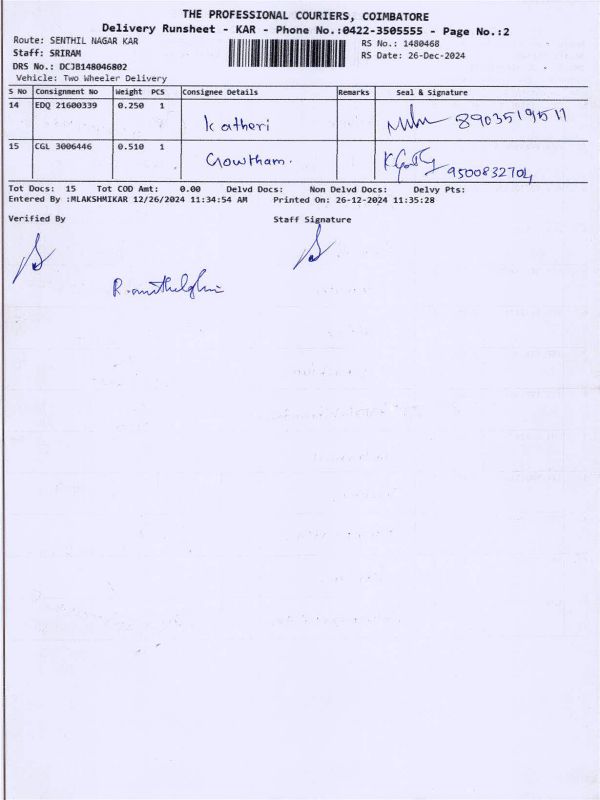 THE PROFESSIONAL COURIERS, COIMBATORE
Delivery Runsheet - KAR - Phone No.:0422-3505555 - Page No.:2
Route: SENTHIL NAGAR KAR
RS No.: 1480468
Staff: SRIRAM
RS Date: 26-Dec-2024
DRS No.: DCJB148046802
Vehicle: Two Wheeler Delivery
S No Consignment No Weight PCS Consignee Details Remarks Seal & Signature
14 EDQ 21600339 0.250 1 Katheri 8903519511
15 CGL 3006446 0.510 1 Gowtham. 9500832704
Tot Docs: 15 Tot COD Amt: 0.00 Delvd Docs: Non Delvd Docs: Delvy Pts:
Entered By :MLAKSHMIKAR 12/26/2024 11:34:54 AM Printed On: 26-12-2024 11:35:28
Verified By Staff Signature